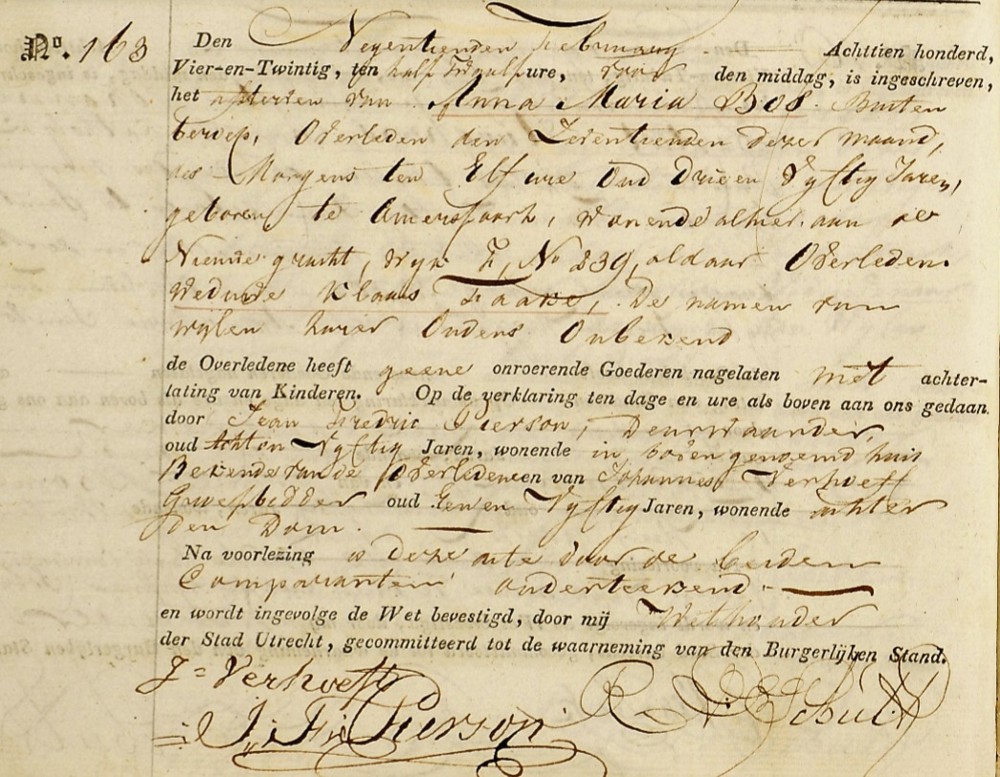 No. 163
Den Negentienden February Achttien honderd,
Vier-en-Twintig, ten half Twaalf ure, voor den middag, is ingeschreven,
het afsterven van Anna Maria Bos. Buiten
beroep, Overleden den Zeventienden dezer maand,
des Morgens ten Elf ure Oud Drie en Vyftig Jaren,
geboren te Amersfoort, wonende alhier aan de
Nieuwe gracht, Wyk No 239, aldaar Overleden.
Weduwe Klaas Faase, De namen van
wylen harer Ouders Onbekend
de Overledene heeft geene onroerende Goederen nagelaten met achter-
lating van Kinderen. Op de verklaring ten dage en ure als boven aan ons gedaan
door Jean Fredric Pierson, Deurwaarder,
oud Acht en Vyftig Jaren, wonende in boven genoemd huis
Bekende van de Overledene en van Johannes Verhoeff
oud Een en Vyftig Jaren, wonende achter
den Dom.
Na voorlezing is deze acte door de beiden
Comparanten onderteekend.
en wordt ingevolge de Wet bevestigd, door mij Wethouder
der Stad Utrecht, gecommitteerd tot de waarneming van den Burgerlijken Stand.
J= Verhoeff
J. F. Pierson